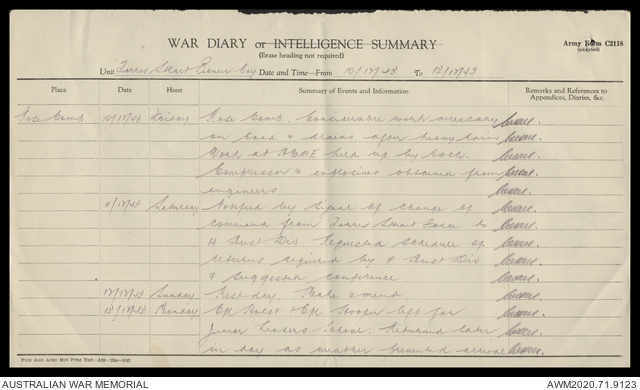 WAR DIARY or INTELLIGENCE SUMMARY
(Erase heading not required)
Army Form C2118
(adapted)
Unit Torres Strait Coy Date and Time—From 10/12/43 To 13/12/43
Place Date Hour Summary of Events and Information Remarks and References to Appendices, Diaries, &c.
Rose Camp 10/12/43 Friday Rose Camp. Considerable work necessary
on road & drains after heavy rain
Work at held up by rock.
Compressor & explosives obtained from
engineers
11/12/43 Saturday Notified by signal of change of
command from Torres Strait Force to
4 Aust Div Requested schedule of
returns required by 4 Aust Div
& suggested conference.
12/12/43 Sunday Rest day. Make & mend.
13/12/43 Monday Cpl & Cpl Hooper left for
Junior Leaders School. Returned later
in day as weather prevented arrival
AUSTRALIAN WAR MEMORIAL
AWM2020.71.9123